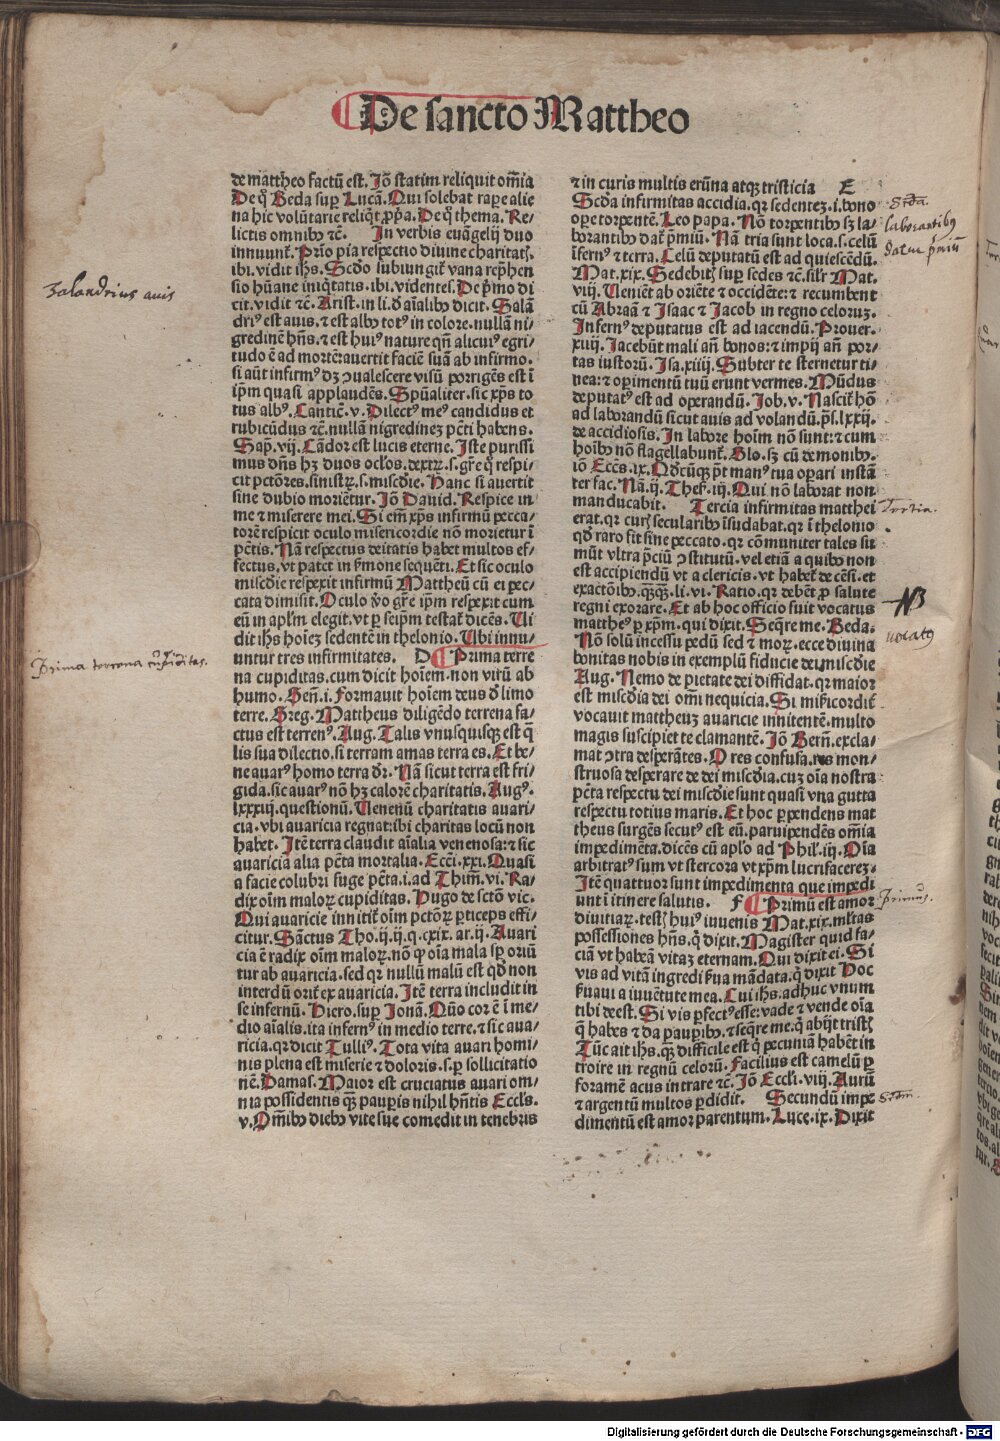 De sancto Mattheo
de mattheo factū est. Jō statim reliquit om̄ia
De q̊ Beda sup̱ Lucā. Qui solebat rapere alie
na hic volūtarie reliq̇t ꝓpꝛia. De q̊ thema. Re/
lictis omnibꝰ ⁊c̄. In verbis euāgelij duo
innuunt᷑. Prīo pia respectio diuine charitatꝭ.
ibi. vidit ihs. Scd̄o subiungit᷑ vana rep̱hen
sio hūane iniq̇tatis. ibi. videntes. De p̱mo di
cit. vidit ⁊c̄. Arist. in li. d̄ aīalibꝰ dicit. Salā
driꝰ est auis. ⁊ est albꝰ totꝰ in colore. nullā ni
gredinē hn̄s. ⁊ est huiꝰ nature qn̄ alicuiꝰ egri/
tudo ē ad mortē auertit faciē suā ab infirmo.
si aūt infirmꝰ dꝫ ꝯualescere visū porrigēs est ī
ip̄m quasi applaudēs. Sp̄ualiter. sic xp̄s to
tus albꝰ. Cantic̄. v. Dilectꝰ meꝰ candidus et
rubicūdus ⁊c̄. nullā nigredineꝫ pcti habens.
Sap̄. vij. Cādor est lucis eterne. Iste purissi
mus dn̄s hꝫ duos oclōs. dextꝝ. s. gr̄e q̊ respi/
cit pctōres. sinistꝝ. s. misc̄die. Hanc si auertit
sine dubio moriētur. Jō Dauid. Respice in
me ⁊ miserere mei. Si em̄ xp̄s infirmū pecca/
torē respicit oculo misericordie nō morietur ī
pctīs. Nā respectus deitatis habet multos ef/
fectus. vt patet in ẜmone sequēti. Et sic oculo
misc̄die respexit infirmū Mattheū cū ei pec/
cata dimisit. Oculo v̊o gr̄e ip̄m respexit cum
eū in apl̄m elegit. vt p̱ seip̄m testat᷑ dicēs. Vi
dit ihs hoīeꝫ sedentē in thelonio. Vbi innu/
untur tres infirmitates. D Prima terre
na cupiditas. cum dicit hoīem. non virū ab
humo. Gen̄. i. Formauit hoīem deus d̄ limo
terre. Greg. Mattheus diligēdo terrena fa/
ctus est terrenꝰ. Aug. Talis vnusquisqꝫ est q̄
lis sua dilectio. si terram amas terra es. Et be/
ne auarꝰ homo terra dr̄. Nā sicut terra est fri/
gida. sic auarꝰ nō hꝫ calorē charitatis. Augꝰ.
lxxxiij. questionū. Venenū charitatis auari/
cia. vbi auaricia regnat: ibi charitas locū non
habet. Itē terra claudit aīalia venenosa: ⁊ sic
auaricia alia pctā mortalia. Ecci. xxi. Quasi
a facie colubri fuge pctā. i. ad Thim̄. vi. Ra/
dix oīm maloꝝ cupiditas. Hugo de sctō vic.
Qui auaricie innitit᷑ oīm pctōꝝ p̱ticeps effi/
citur. Sāctus Tho. ij. ij. q. cxix. ar. ij. Auari
cia ē radix oīm maloꝝ. nō ꝙ oīa mala sp̱ oriū
tur ab auaricia. sed qꝛ nullū malū est qd̄ non
interdū orit᷑ ex auaricia. Itē terra includit in
se infernū. Hiero. sup̱ Jonā. Qūo cor ē ī me/
dio aīalis. ita infernꝰ in medio terre. ⁊ sic aua/
ricia. qꝛ dicit Tulliꝰ. Tota vita auari homi/
nis plena est miserie ⁊ doloris. s. p̱ sollicitatio
nē. Damas. Maior est cruciatus auari om/
nia possidentis qꝫ paup̱is nihil hn̄tis Eccl̄s.
v. Om̄ibꝰ diebꝰ vite sue comedit in tenebris
⁊ in curis multis erūna atqꝫ tristicia E
Scd̄a infirmitas accidia. qꝛ sedenteꝫ. i. bono
oꝑe torpentē. Leo papa. Nō torpentibꝰ sꝫ la/
borantibꝰ dat᷑ p̱miū. Nā tria sunt loca. s. celū
īfernꝰ ⁊ terra. Celū deputatū est ad quiescēdū.
Mat. xix. Sedebitꝭ sup̱ sedes ⁊c̄. sil̄r Mat.
viij. Venient ab oriēte ⁊ occidēte: ⁊ recumbent
cū Abraā ⁊ Isaac ⁊ Jacob in regno celoruꝫ.
Infernꝰ deputatus est ad iacendū. Prouer.
xiiij. Jacebūt mali an̄ bonos: ⁊ impij an̄ por/
tas iustorū. Isa. xiiij. Subter te sternetur ti/
nea: ⁊ oꝑimentū tuū erunt vermes. Mūdus
deputatꝰ est ad oꝑandū. Job. v. Nascit᷑ hō
ad laborandū sicut auis ad volandū. p̄s. lxxij.
de accidiosis. In labore hoīm nō sunt: ⁊ cum
hoībꝰ nō flagellabunt᷑. Glo. sꝫ cū demonibꝰ.
iō Eccēs. ix. Qd̄cūqꝫ pt̄ manꝰ tua oꝑari instā
ter fac. Nā. ij. Thes̄. iij. Qui nō laborat non
manducabit. Tercia infirmitas matthei
erat. qꝛ curꝭ secularibꝰ īsudabat. qꝛ ī thelonio
qd̄ raro fit sine peccato. qꝛ cōmuniter tales su
mūt vltra p̱ciū ꝯstitutū. vel etiā a quibꝰ non
est accipiendū vt a clericis. vt habet᷑ de cēsi. et
exactōibꝰ. qꝫqꝫ. li. vi. Ratio. qꝛ debēt ꝓ salute
regni exorare. Et ab hoc officio fuit vocatus
mattheꝰ p̱ xp̄m. qui dixit. Seq̄re me. Beda.
Nō solū incessu pedū sed ⁊ moꝝ. ecce diuina
bonitas nobis in exemplū fiducie dei misc̄die
Aug. Nemo de pietate dei diffidat. qꝛ maior
est misc̄dia dei om̄i nequicia. Si mīsericordit᷑
vocauit mattheuꝫ auaricie innitentē. multo
magis suscipiet te clamantē. Jō Bern̄. excla/
mat ꝯtra desperātes. O res confusa. res mon/
struosa desperare de dei misc̄dia. cuꝫ oīa nostra
pctā respectu dei misc̄die sunt quasi vna gutta
respectu totius maris. Et hoc ꝑpendens mat
theus surgēs secutꝰ est eū. paruipendēs om̄ia
impedimēta. dicēs cū apl̄o ad Phil̄. iij. Oīa
arbitratꝰ sum vt stercora vt xp̄m lucrifacereꝫ.
Itē quattuor sunt impedimenta que impedi
unt ī itinere salutis. F Primū est amor
diuitiaꝝ. testꝭ huiꝰ iuuenis Mat. xix. ml̄tas
possessiones hn̄s. q̊ dixit. Magister quid fa/
ciā vt habeā vitaꝫ eternam. Qui dixit ei. Si
vis ad vitā ingredi ẜua mādata. q̊ dixit Hoc
ẜuaui a iuuētute mea. Cui ihs. adhuc vnum
tibi deest. Si vis ꝑfectꝰ esse: vade ⁊ vende oīa
q̄ habes ⁊ da paup̱ibꝰ. ⁊ seq̄re me. q̊ abijt tristꝭ
Tūc ait ihs. qꝫ difficile est q̊ pecuniā habēt in
troire in regnū celorū. Facilius est camelū p̱
foramē acus intrare ⁊c̄. Jō Eccl̄i. viij. Aurū
⁊ argentū multos ꝑdidit. Secundū impe
dimentū est amor parentum. Luce. ix. Dixit
Zalandrius auis
Prima terrena cupiditas.
Scd̄a.
laborantibꝰ
datur p̱miū
Tertia.
NB
uocatꝰ
Primū.
Scd̄m.
Digitalisierung gefördert durch die Deutsche Forschungsgemeinschaft - DFG